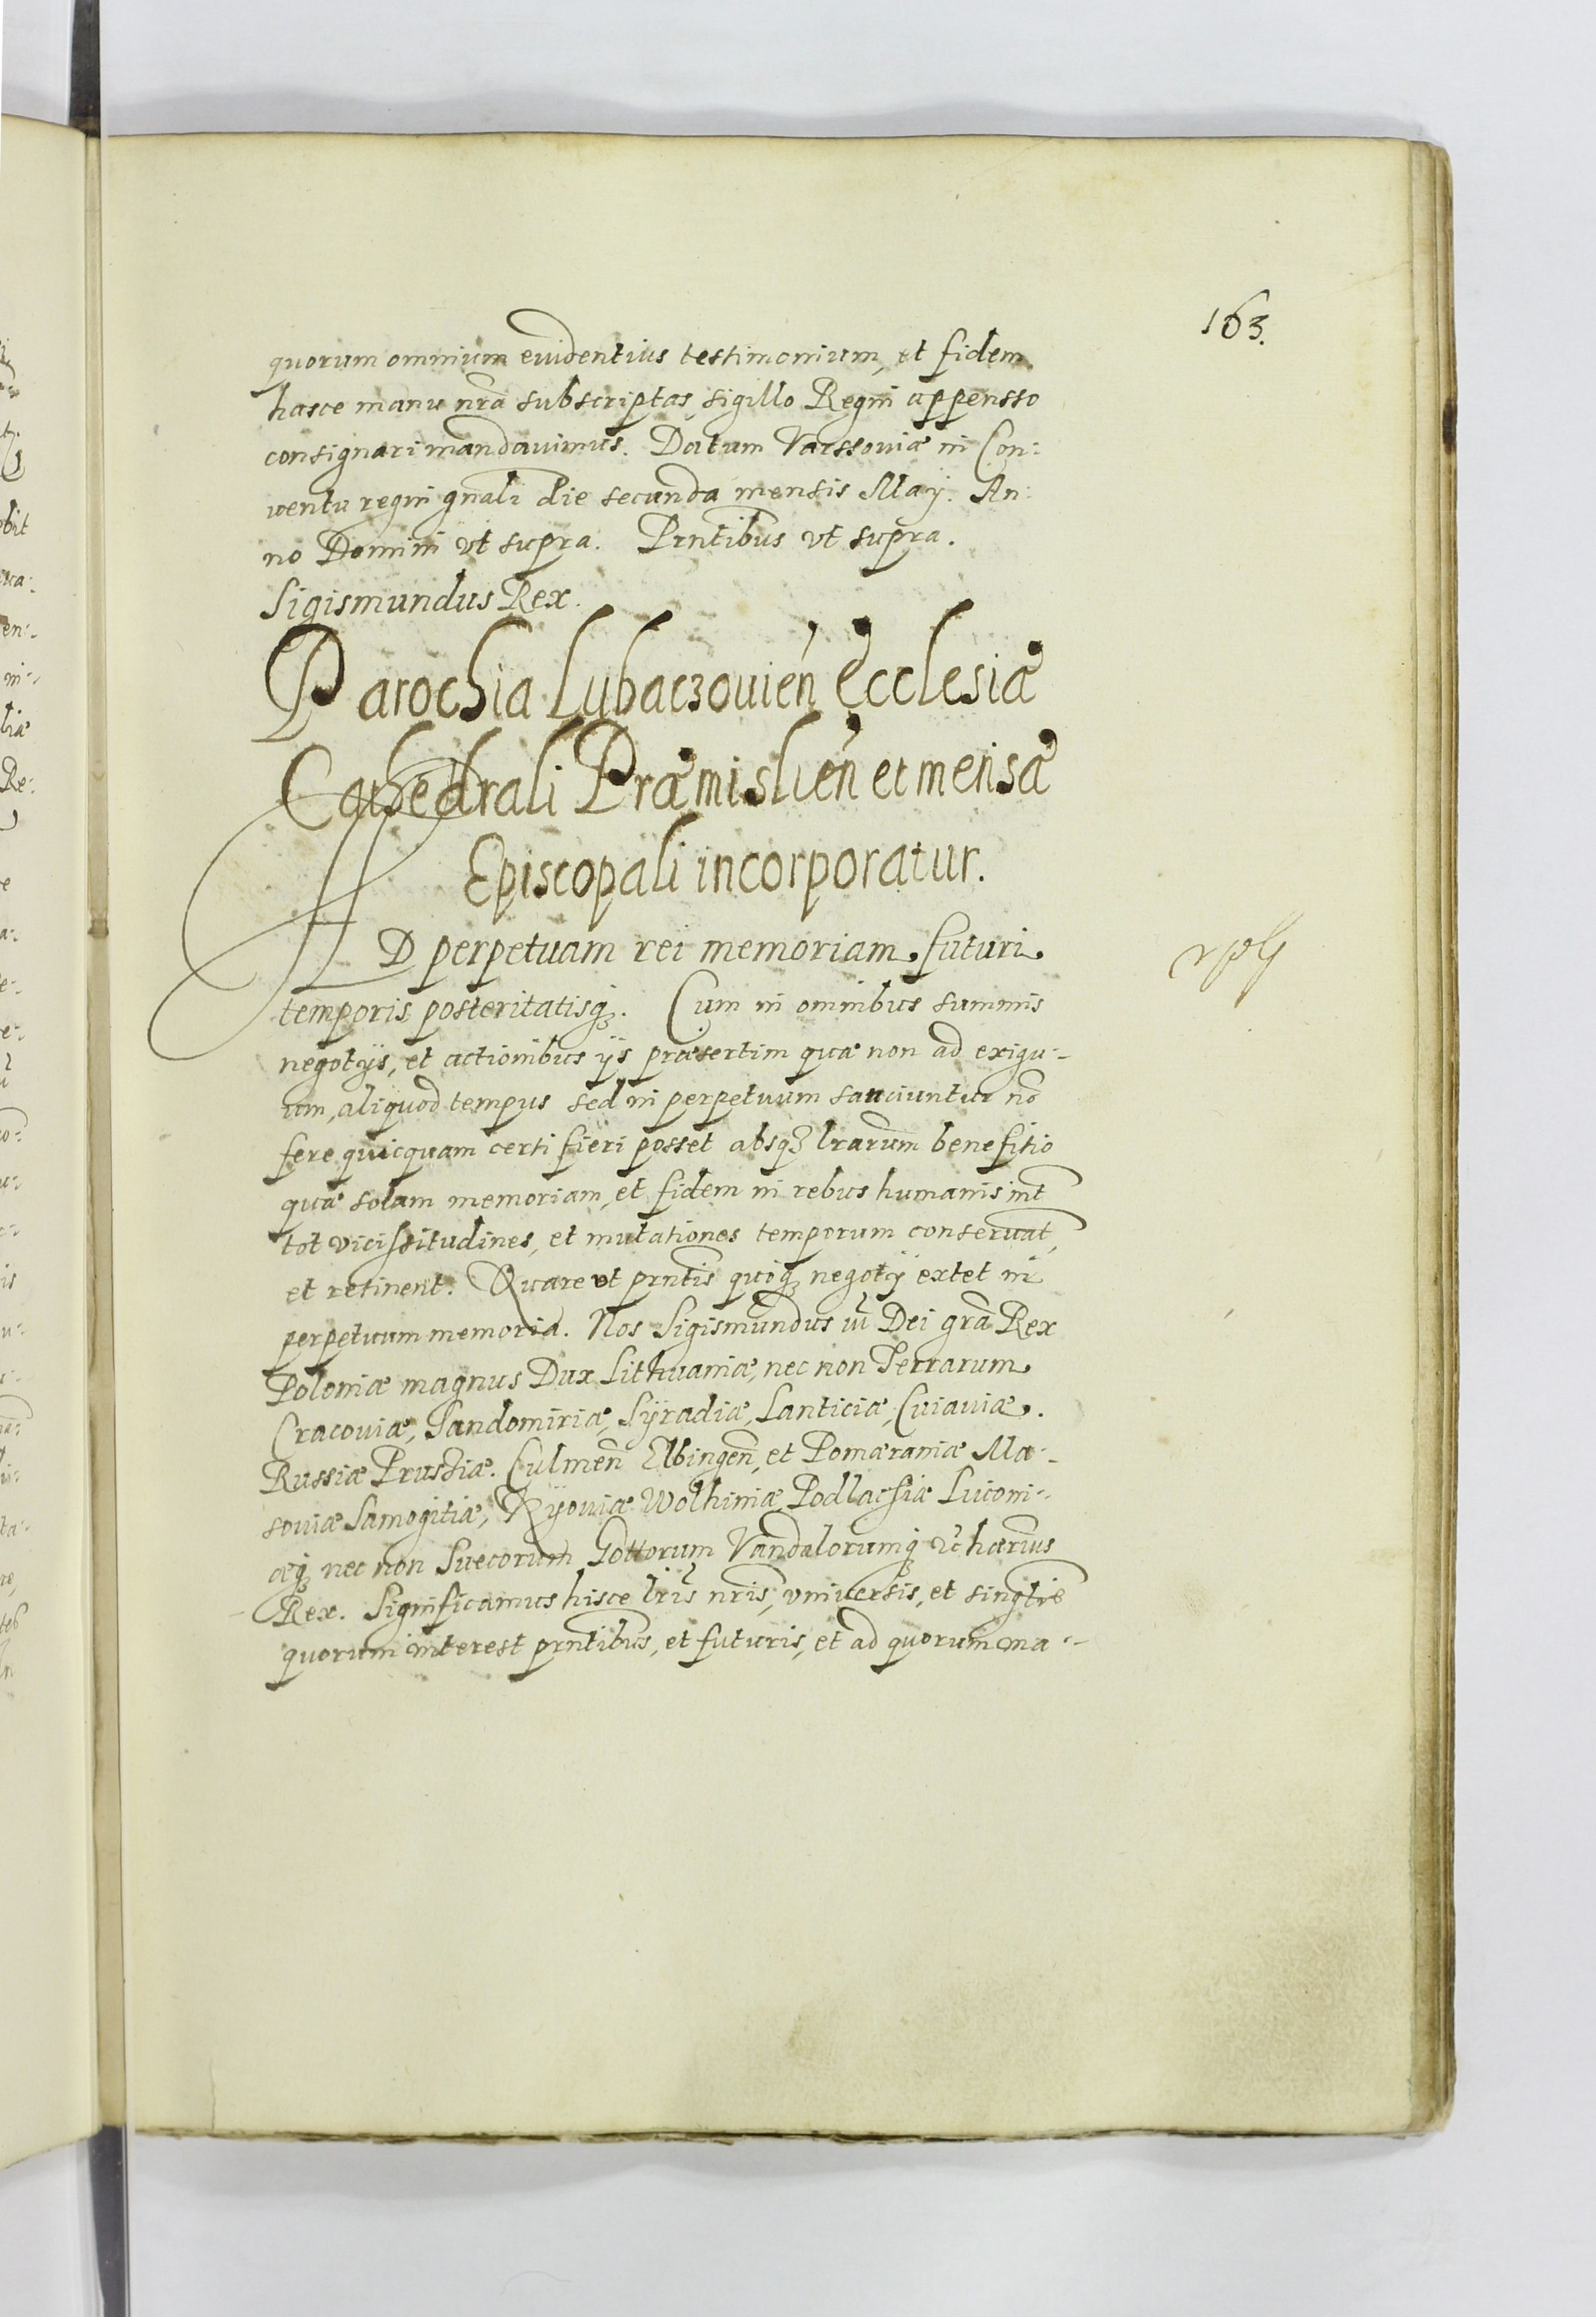 163.
quorum omnium euidentius testimonium, et fidem
hasce manu nrã subscriptas, sigillo Regni appensso
consignari mandauimus. Datum Varssouiæ in Con:
uentu regni gnãli die secunda mensis Maÿ. An:
no Domini vt supra. Prntibus vt supra.
Sigismundus Rex.
Parochia Lubaczouień Ecclesiæ
Cathedrali Præmislień et mensæ
Episcopali incorporatur.
AD perpetuam rei memoriam futuri
temporis posteritatisqꝫ. Cum in omnibus summis
negotÿs, et actionibus ÿs præsertim quæ non ad exigu:
um, aliquod tempus sed in perpetuum sanciuntur nõ
fere quicquam certi fieri posset absqꝫ lrarum benefitio
quæ solam memoriam, et fidem in rebus humanis int
tot vicissitudines, et mutationes temporum conseruat,
et retinent. Quare vt prntis quoqꝫ negotÿ extet in
perpetuum memoria. Nos Sigismundus Dei grã Rex
Poloniæ magnus Dux Lithuaniæ, nec non Terrarum
Cracouiæ, Sandomiriæ, Sÿradiæ, Lanticiæ, Cuiauiæ.
Russiæ Prussiæ. Culmeñ Elbingeñ, et Pomæraniæ Ma:
souiæ Samogitiæ, Kÿouiæ Wolhiniæ Podlachiæ Liuoni:
æqꝫ nec non Suecorum Gottorum Vandalorumqꝫ hærius
Rex. Significamus hisce lris nris, vniuersis, et singlis
quorum interest prntibus, et futuris, et ad quorum ma: